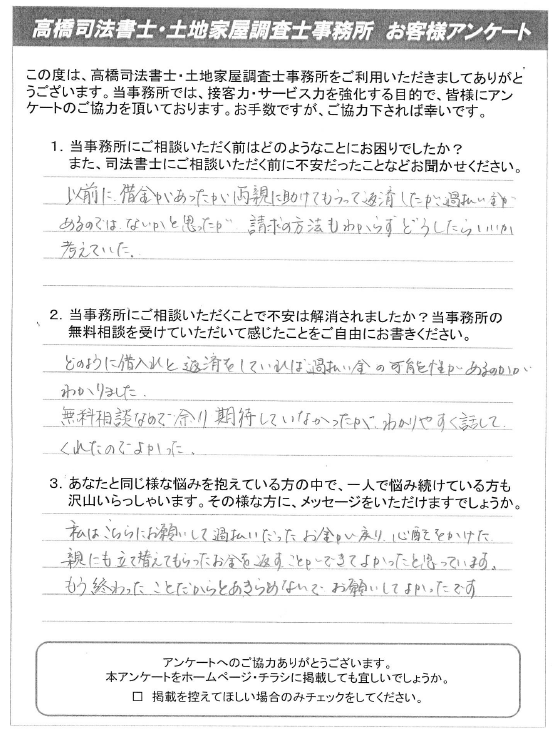 高橋司法書士・土地家屋調査士事務所 お客様アンケート
この度は、高橋司法書士・土地家屋調査士事務所をご利用いただきましてありがと
うございます。当事務所では、接客力・サービス力を強化する目的で、皆様にアン
ケートのご協力を頂いております。お手数ですが、ご協力下されば幸いです。
1. 当事務所にご相談いただく前はどのようなことにお困りでしたか?
また、司法書士にご相談いただく前に不安だったことなどお聞かせください。
以前に、借金があったが両親に助けてもらって返済したが、過払い金が
あるのではないかと思ったが 請求の方法もわからずどうしたらいいか
考えていた。
2. 当事務所にご相談いただくことで不安は解消されましたか?当事務所の
無料相談を受けていただいて感じたことをご自由にお書きください。
どのように借入れと返済をしていれば過払い金の可能性があるのかが
わかりました。
無料相談なので余り期待していなかったが、わかりやすく話して
くれたのでよかった。
3. あなたと同じ様な悩みを抱えている方の中で、一人で悩み続けている方も
沢山いらっしゃいます。その様な方に、メッセージをいただけますでしょうか。
私はこちらにお願いして過払いだったお金が戻り、心配をかけた
親にも立て替えてもらったお金を返すことができてよかったと思っています。
もう終わったことだからとあきらめないで お願いしてよかったです
アンケートへのご協力ありがとうございます。
本アンケートをホームページ・チラシに掲載しても宜しいでしょうか。
□ 掲載を控えてほしい場合のみチェックをしてください。